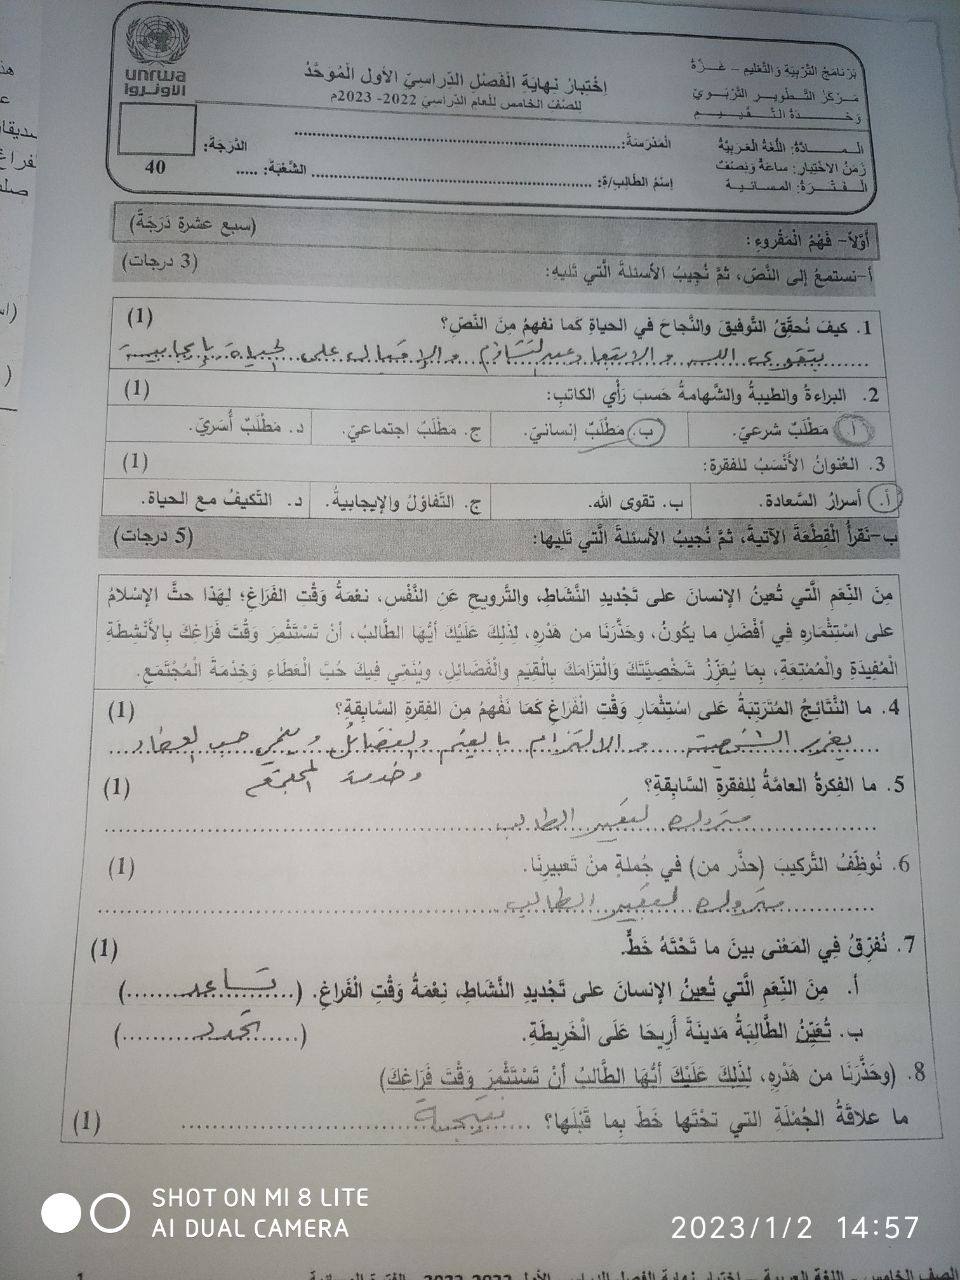 unrwa
الأونروا
بَرْنَامَجُ التَّرْبِيَةِ وَالتَّعْلِيمِ – غَـزَّةُ
مَـرْكَزُ التَّطْوِيرِ التَّرْبَوِيِّ
وَحْدَةُ التَّقْيِيمِ
اِخْتِبَارُ نِهايَةِ الْفَصْلِ الدِّراسِيِّ الأولِ الْمُوَحَّدُ
للصَّفِّ الخامسِ للْعامِ الدِّراسِيِّ 2022- 2023م
المادّةُ: اللُّغَةُ العَرَبِيَّةُ
المَدْرَسَةُ:
الدَّرَجَةُ:
زَمَنُ الاخْتِبَارِ: ساعَةٌ وَنِصْفٌ
الفَتْرَةُ: المسائية
اِسْمُ الطّالِبِ/ةِ:
الشُّعْبَةُ: .....
40
أوَّلاً- فَهْمُ الْمَقْروءِ:
(سبع عشرة دَرَجَةً)
أ-نستمعُ إلى النَّصِّ، ثمَّ نُجِيبُ الأسئلةَ الَّتي تَليهِ:
(3 درجات)
1. كيفَ نُحقِّقُ التَّوفيقَ والنَّجاحَ في الحياةِ كَما نفهمُ مِنَ النَّصِّ؟ (1)
بتقوى الله والابتعاد عن التشاؤم والإقبال على الحياة بإيجابية
2. البراءةُ والطيبةُ والشَّهامةُ حَسبَ رَأْيِ الكاتبِ: (1)
أ. مَطْلَبٌ شرعيّ. ب. مَطْلَبٌ إنسانيّ. ج. مَطْلَبٌ اجتماعيّ. د. مَطْلَبٌ أُسَريّ.
3. العُنوانُ الأَنْسَبُ للفقرة: (1)
أ. أسرارُ السَّعادة. ب. تقوى الله. ج. التَّفاؤل والإيجابيةُ. د. التَّكيفُ مع الحياة.
ب-نَقرأُ الْقِطْعَةَ الآتيةَ، ثمَّ نُجيبُ الأسئلةَ الَّتي تَليها:
(5 درجات)
مِنَ النِّعَمِ الَّتي تُعينُ الإنسانَ على تَجْديدِ النَّشاطِ، والتَّرويحِ عَنِ النَّفْسِ، نعْمَةُ وَقْتِ الفَرَاغِ؛ لِهَذا حثَّ الإسْلامُ
على اسْتِثْمارِهِ فِي أفْضَلِ ما يكُونُ، وحَذَّرَنَا من هَدْرِهِ، لذلِكَ عَلَيْكَ أيُّهَا الطَّالبُ، أنْ تَسْتَثْمِرَ وَقْتَ فَرَاغكَ بِالأَنْشطَةِ
الْمُفِيدَةِ وَالْمُمْتعَةِ، بِمَا يُعَزِّزُ شَخْصِيَّتَكَ وَالْتِزَامَكَ بِالْقِيَمِ والْفَضَائلِ، ويُنَمّي فيكَ حُبَّ الْعَطَاءِ وَخِدْمَةَ الْمُجْتَمَعِ.
4. ما النَّتَائِجُ الْمُتَرَتِبَةُ عَلى اسْتِثْمارِ وَقْتِ الْفَراغِ كَمَا نَفْهَمُ مِنَ الفِقرةِ السَّابقةِ؟ (1)
يعزز الشخصية والالتزام بالقيم والفضائل وينمي حب العطاء
وخدمة المجتمع
5. ما الفِكرةُ العامَّةُ لِلفقرةِ السَّابِقِةِ؟ (1)
متروك لتعبير الطالب
6. نُوظِّفُ التَّركيبَ (حذَّر من) في جُملةٍ منْ تَعبيرِنَا. (1)
متروك لتعبير الطالب
7. نُفرِّقُ فِي المَعْنى بينَ ما تَحْتَهُ خَطٌّ. (1)
أ. مِنَ النِّعَمِ الَّتي تُعينُ الإنسانَ على تَجْديدِ النَّشاطِ، نِعْمَةُ وَقْتِ الْفَراغِ. (تساعد)
ب. تُعَيِّنُ الطَّالِبَةُ مَدينَةَ أَرِيحَا عَلَى الْخَرِيطَةِ. (تحدد)
8. (وحَذَّرَنَا من هَدْرِهِ، لذَلِكَ عَلَيْكَ أيُّهَا الطَّالبُ أنْ تَسْتَثْمِرَ وَقْتَ فَرَاغكَ)
ما علاقَةُ الجُمْلَةِ التي تحْتَها خَطٌ بِما قَبْلَها؟ نتيجة (1)
SHOT ON MI 8 LITE
AI DUAL CAMERA
2023/1/2 14:57